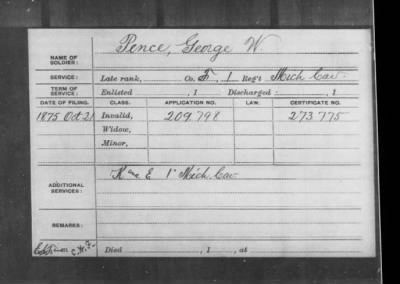 NAME OF SOLDIER: Pence, George W.
SERVICE: Late rank, Co. F, 1 Reg't Mich Cav.
TERM OF SERVICE: Enlisted , 1 Discharged , 1
DATE OF FILING. CLASS. APPLICATION NO. LAW. CERTIFICATE NO.
1875 Oct 21 Invalid, 209.798 273.775
Widow,
Minor,
ADDITIONAL SERVICES: E 1" Mich. Cav
REMARKS:
Died , 1 , at